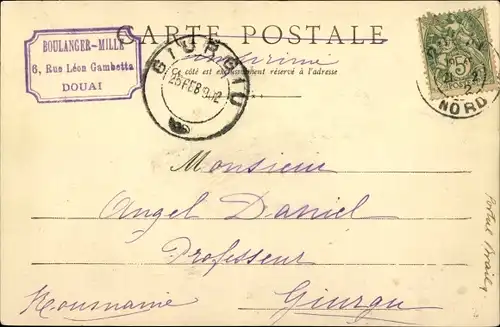 BOULANGER-MILLE
6, Rue Léon Gambetta
DOUAI
CARTE POSTALE
imprimé
Ce côté est exclusivement réservé à l'adresse
GIURGIU
25 FEB 902
5
NORD
Monsieur
Angel Daniel
Professeur
Roumanie
Giurgu